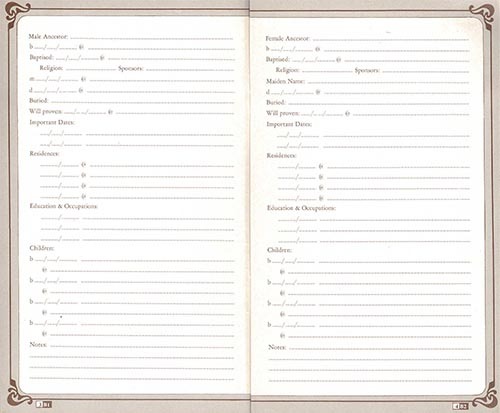 Male Ancestor:
b ...../...../.......... @
Baptised: ...../...../.......... @
Religion: Sponsors:
m ...../...../.......... @
d ...../...../.......... @
Buried:
Will proven: ...../...../.......... @
Important Dates:
...../...../..........
...../...../..........
Residences:
...../.......... @
...../.......... @
...../.......... @
...../.......... @
Education & Occupations:
...../..........
...../..........
...../..........
Children:
b ...../...../..........
@
b ...../...../..........
@
b ...../...../..........
@
b ...../...../..........
@
Notes:
Female Ancestor:
b ...../...../.......... @
Baptised: ...../...../.......... @
Religion: Sponsors:
Maiden Name:
d ...../...../.......... @
Buried:
Will proven: ...../...../.......... @
Important Dates:
...../...../..........
...../...../..........
Residences:
...../.......... @
...../.......... @
...../.......... @
...../.......... @
Education & Occupations:
...../..........
...../..........
...../..........
Children:
b ...../...../..........
@
b ...../...../..........
@
b ...../...../..........
@
b ...../...../..........
@
Notes: